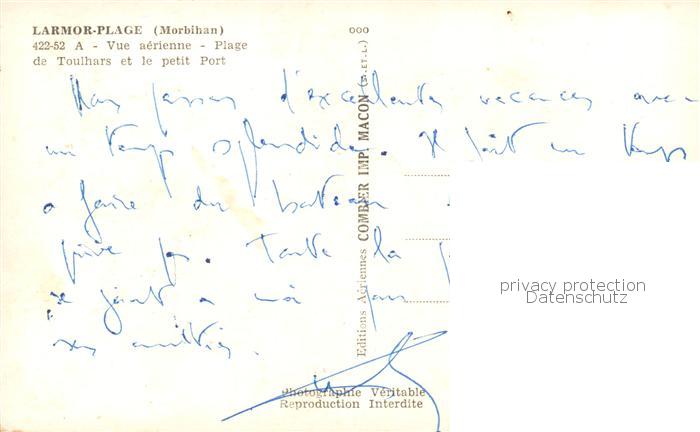 LARMOR-PLAGE (Morbihan)
422-52 A - Vue aérienne - Plage
de Toulhars et le petit Port
Nous passons d'excellentes vacances avec
un temps splendide. Il fait un temps
a faire du bateau
prive pas. Toute la
se joint a moi pour
ses amitiés.
Editions Aériennes COMBIER IMP. MACON (S.-ET-L.)
privacy protection
Datenschutz
Photographie Véritable
Reproduction Interdite